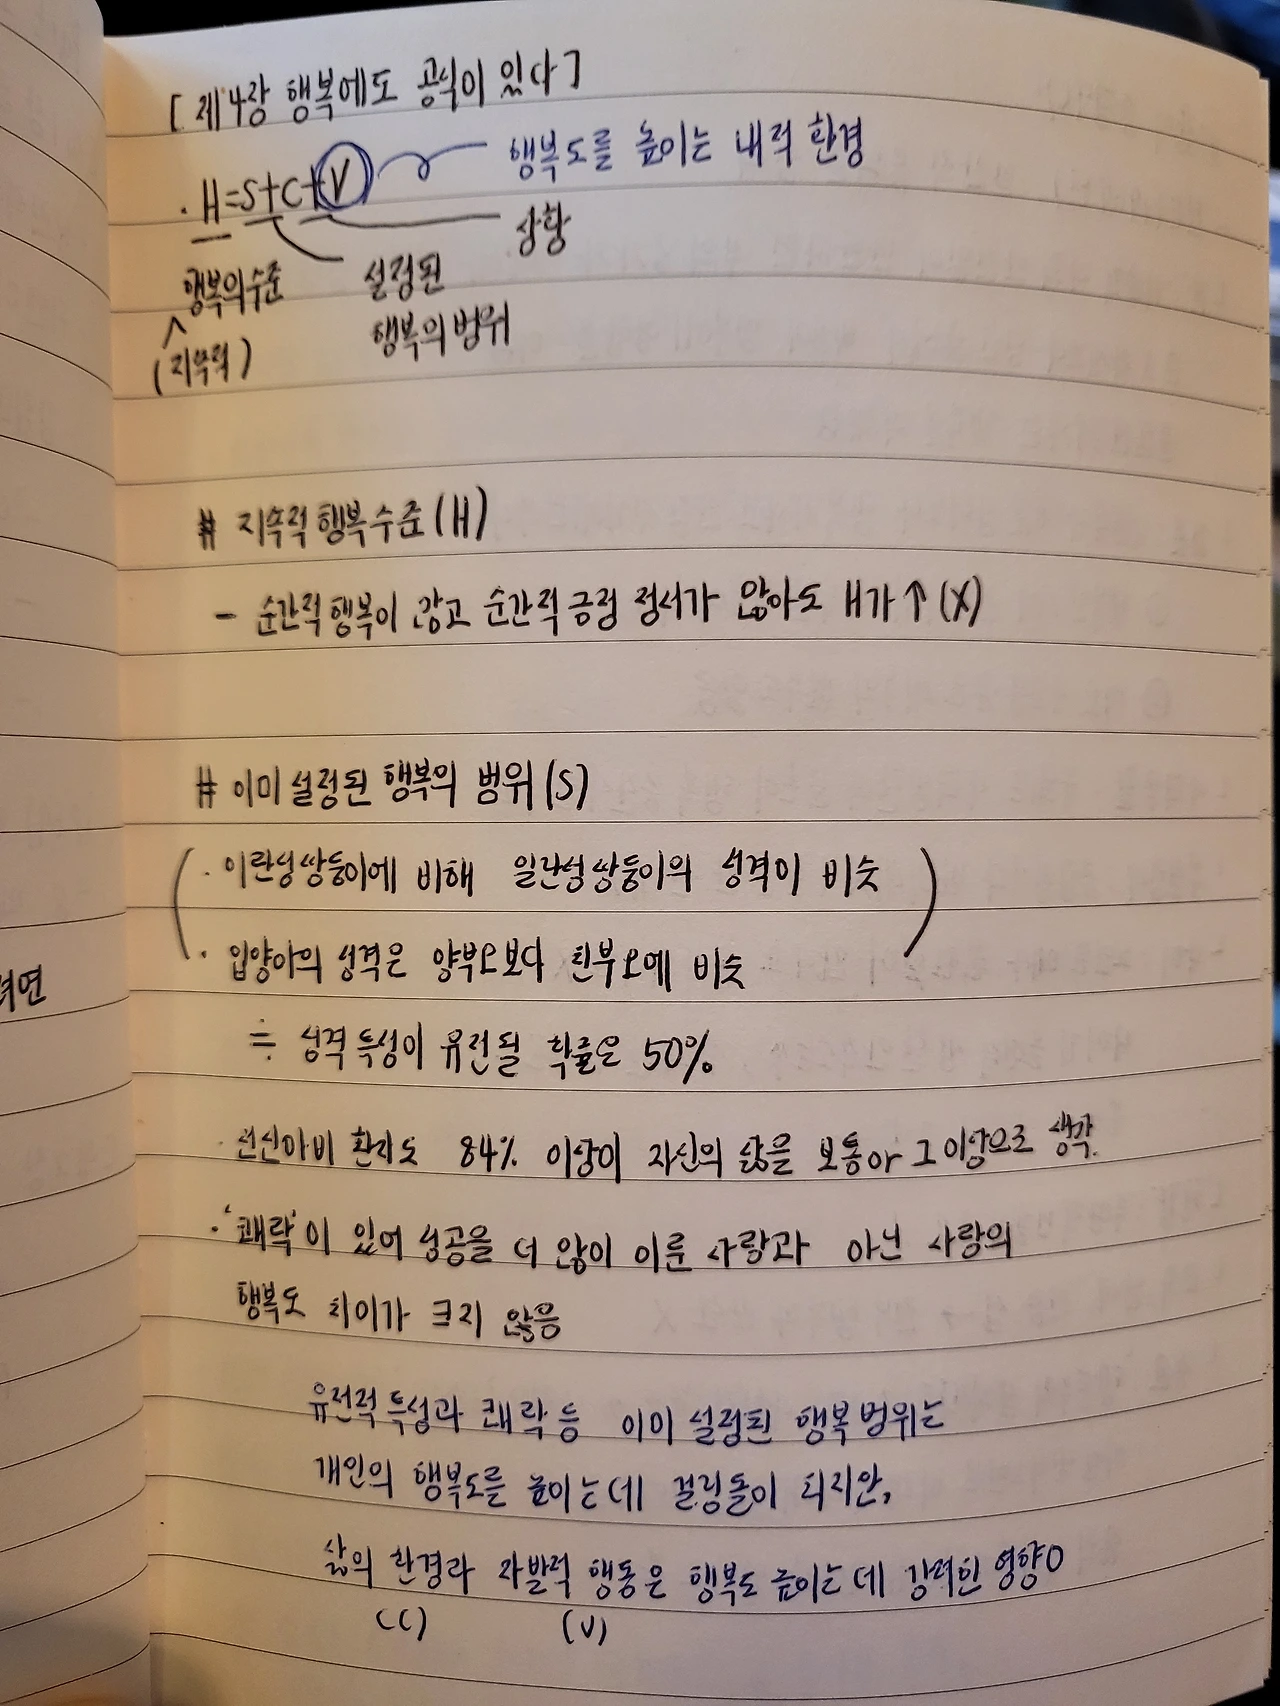 [ 제4장 행복에도 공식이 있다 ]
· H=S+C+V 행복도를 높이는 내적 환경
상황
행복의 수준 설정된
(지속적) 행복의 범위
# 지속적 행복 수준 (H)
- 순간적 행복이 많고 순간적 긍정 정서가 많아도 H가 ↑ (X)
# 이미 설정된 행복의 범위 (S)
· 이란성쌍둥이에 비해 일란성쌍둥이의 성격이 비슷
· 입양아의 성격은 양부모보다 친부모에 비슷
≒ 성격 특성이 유전될 확률은 50%
· 전신마비 환자도 84% 이상이 자신의 삶을 보통or그이상으로 생각.
· '쾌락'이 있어 성공을 더 많이 이룬 사람과 아닌 사람의
행복도 차이가 크지 않음
유전적 특성과 쾌락 등 이미 설정된 행복 범위는
개인의 행복도를 높이는데 걸림돌이 되지만,
삶의 환경과 자발적 행동은 행복도 높이는데 강력한 영향O
(C) (V)